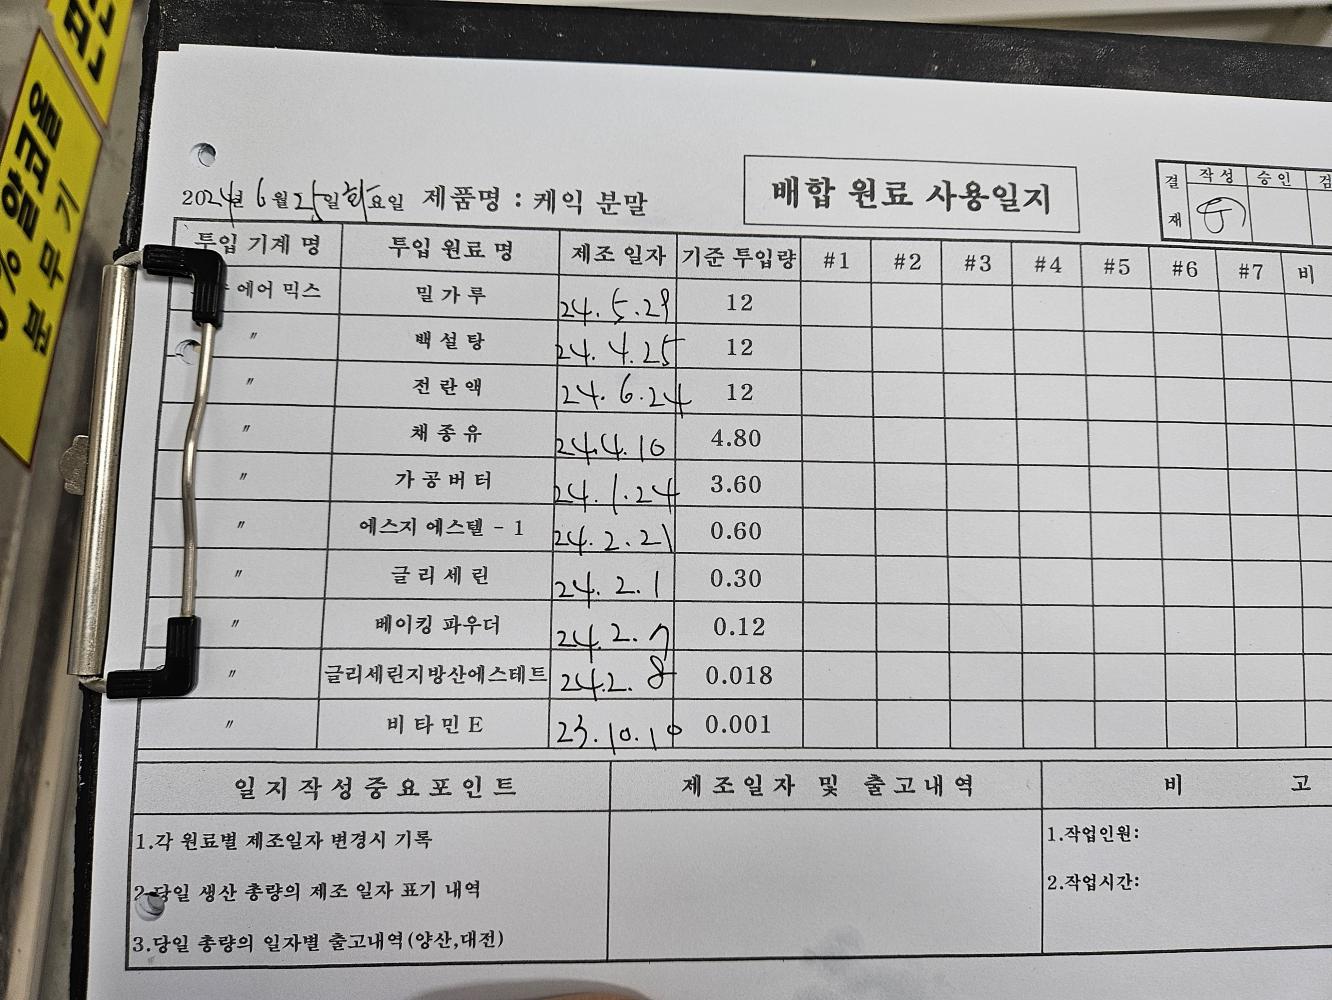 알코올
분무기
배합 원료 사용일지
결재 작성 승인 검
2024년 6월 25일 화요일 제품명 : 케익 분말
투입 기계 명 투입 원료 명 제조 일자 기준 투입량 #1 #2 #3 #4 #5 #6 #7 비
에어 믹스 밀가루 24.5.28 12
" 백설탕 24.4.25 12
" 전란액 24.6.24 12
" 채종유 24.4.10 4.80
" 가공버터 24.1.24 3.60
" 에스지 에스텔 - 1 24.2.21 0.60
" 글리세린 24.2.1 0.30
" 베이킹 파우더 24.2.7 0.12
" 글리세린지방산에스테트 24.2.8 0.018
" 비타민E 23.10.10 0.001
일지작성중요포인트 제조일자 및 출고내역 비 고
1.각 원료별 제조일자 변경시 기록 1.작업인원:
2.당일 생산 총량의 제조 일자 표기 내역 2.작업시간:
3.당일 총량의 일자별 출고내역(양산,대전)